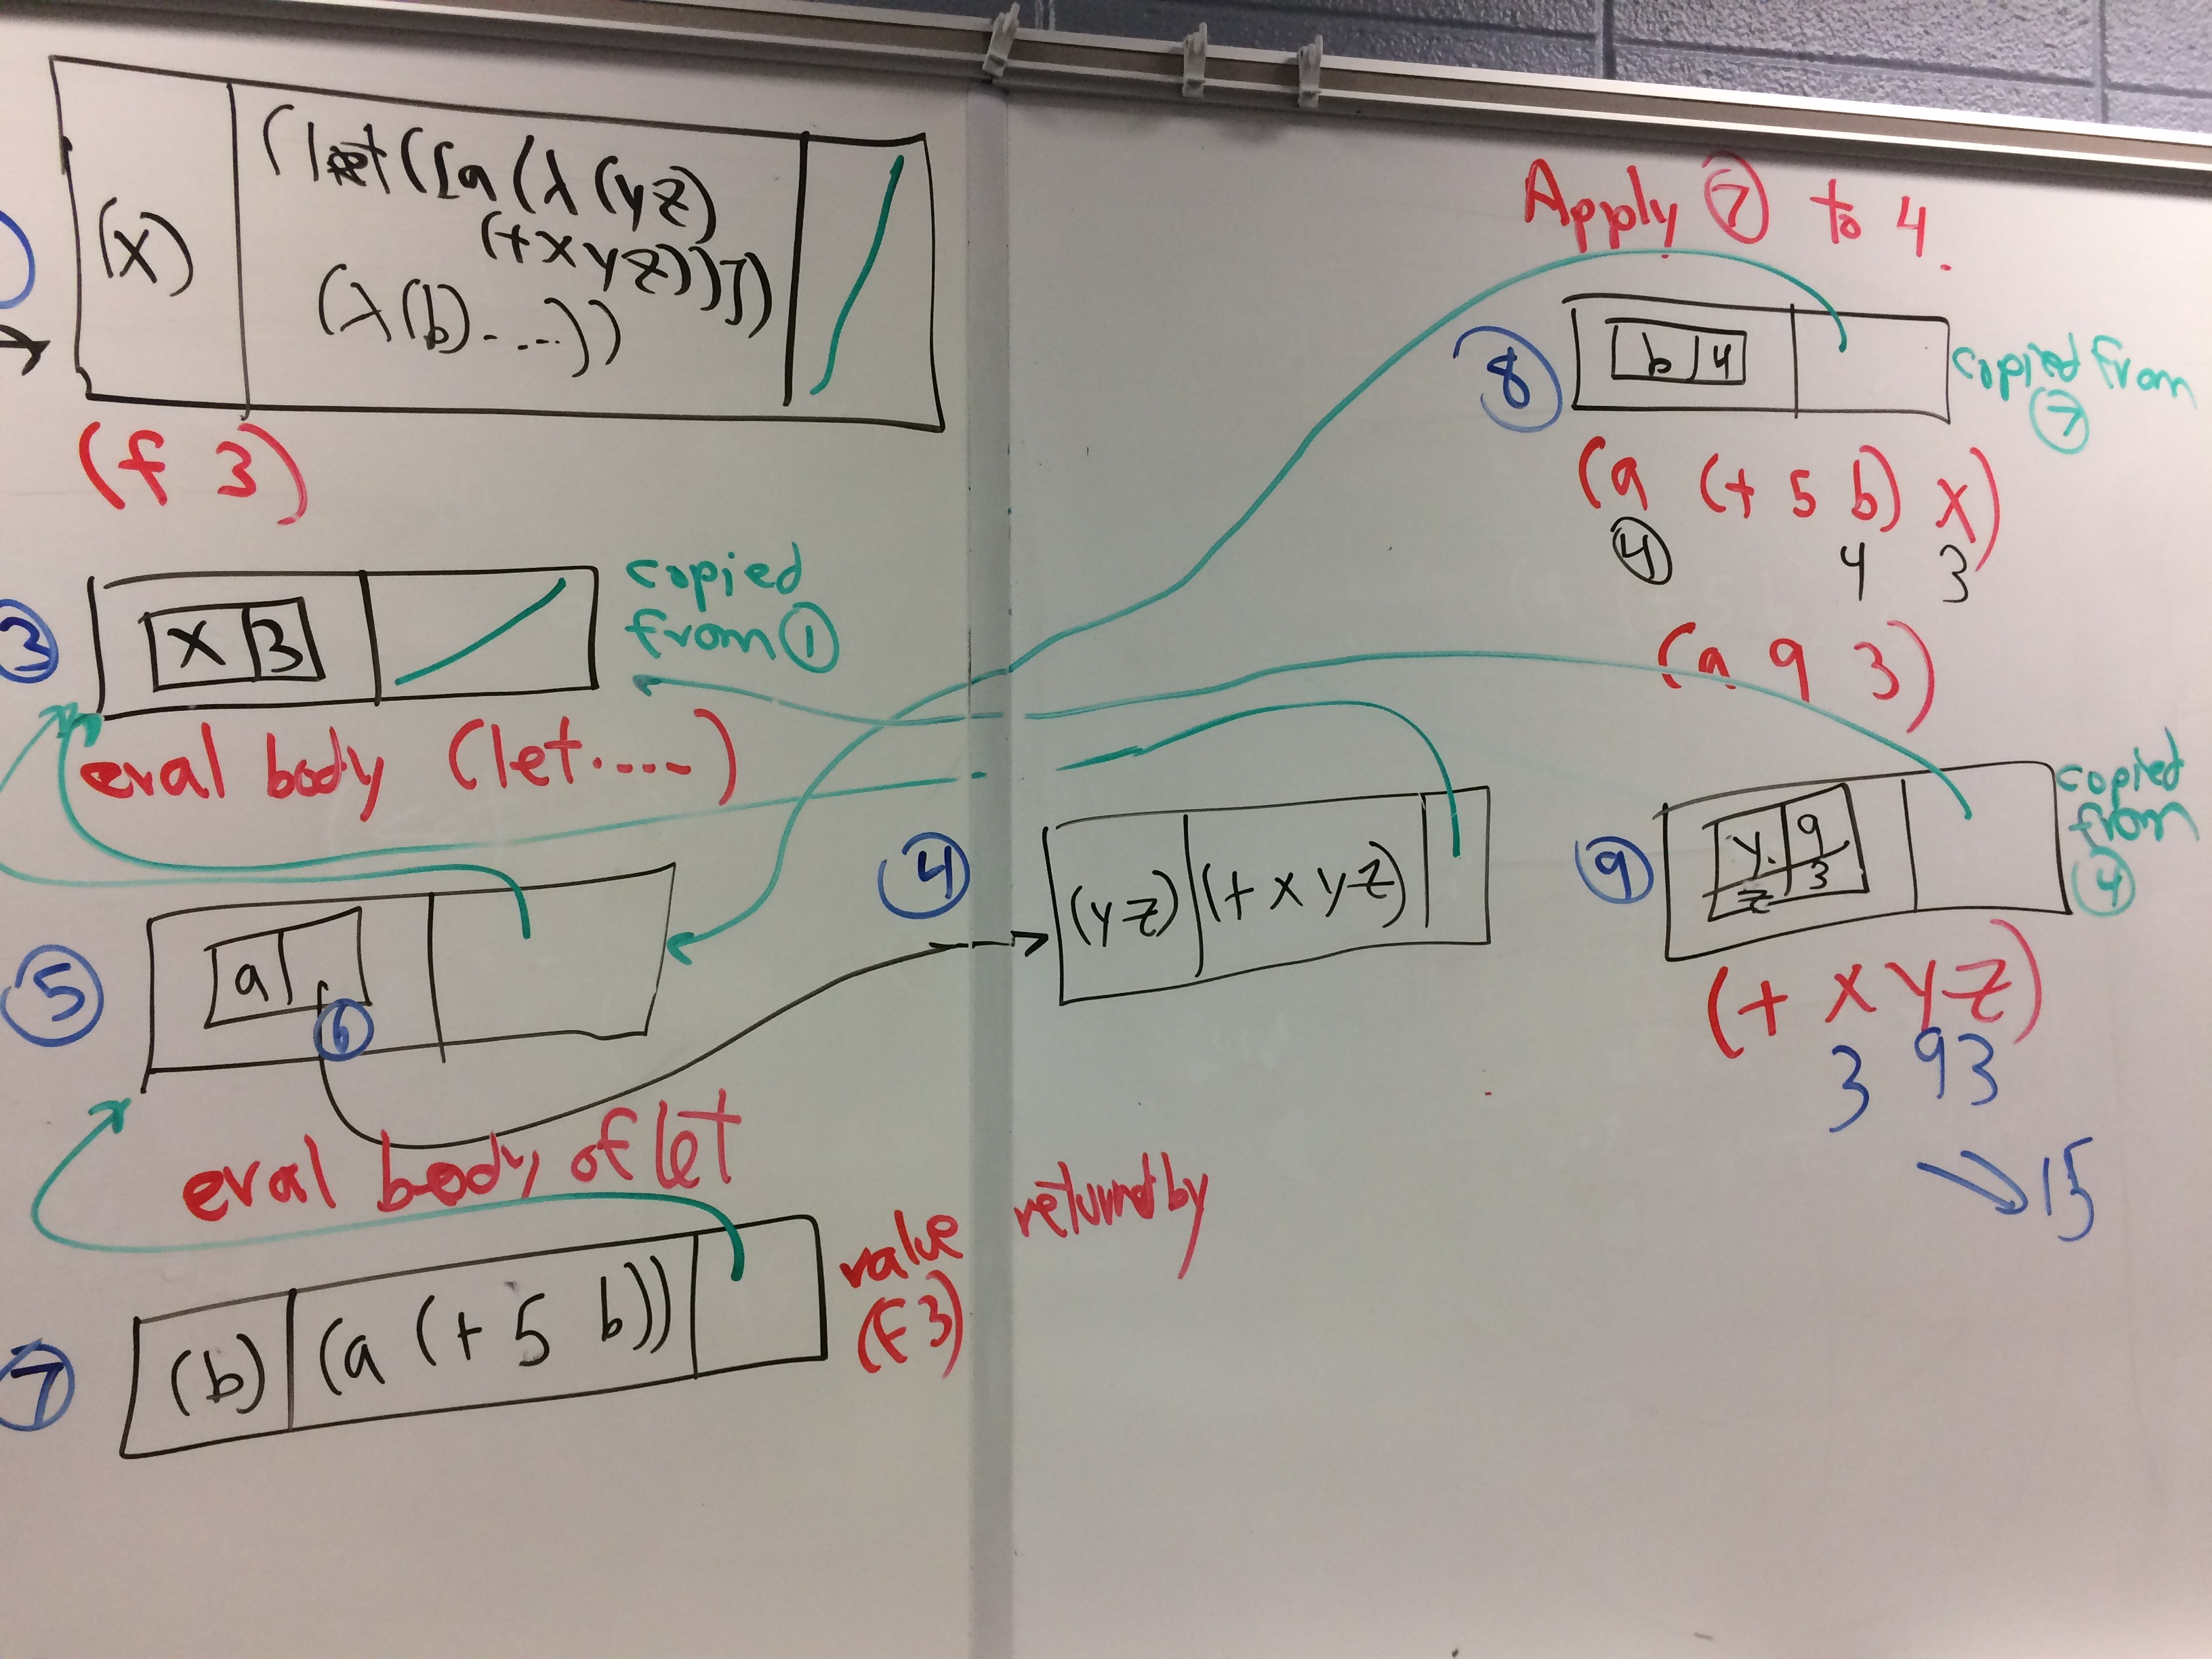 (x)
(let ([a (λ (y z)
(+ x y z))])
(λ (b) ....))
(f 3)
3
x 3
copied
from 1
eval body (let....)
5
a
6
eval body of let
7
(b) (a (+ 5 b))
value returned by
(f 3)
4
(y z) (+ x y z)
Apply 7 to 4.
8
b 4
copied from
7
(a (+ 5 b) x)
4 4 3
(a 9 3)
9
y 9
z 3
copied
from
4
(+ x y z)
3 9 3
15